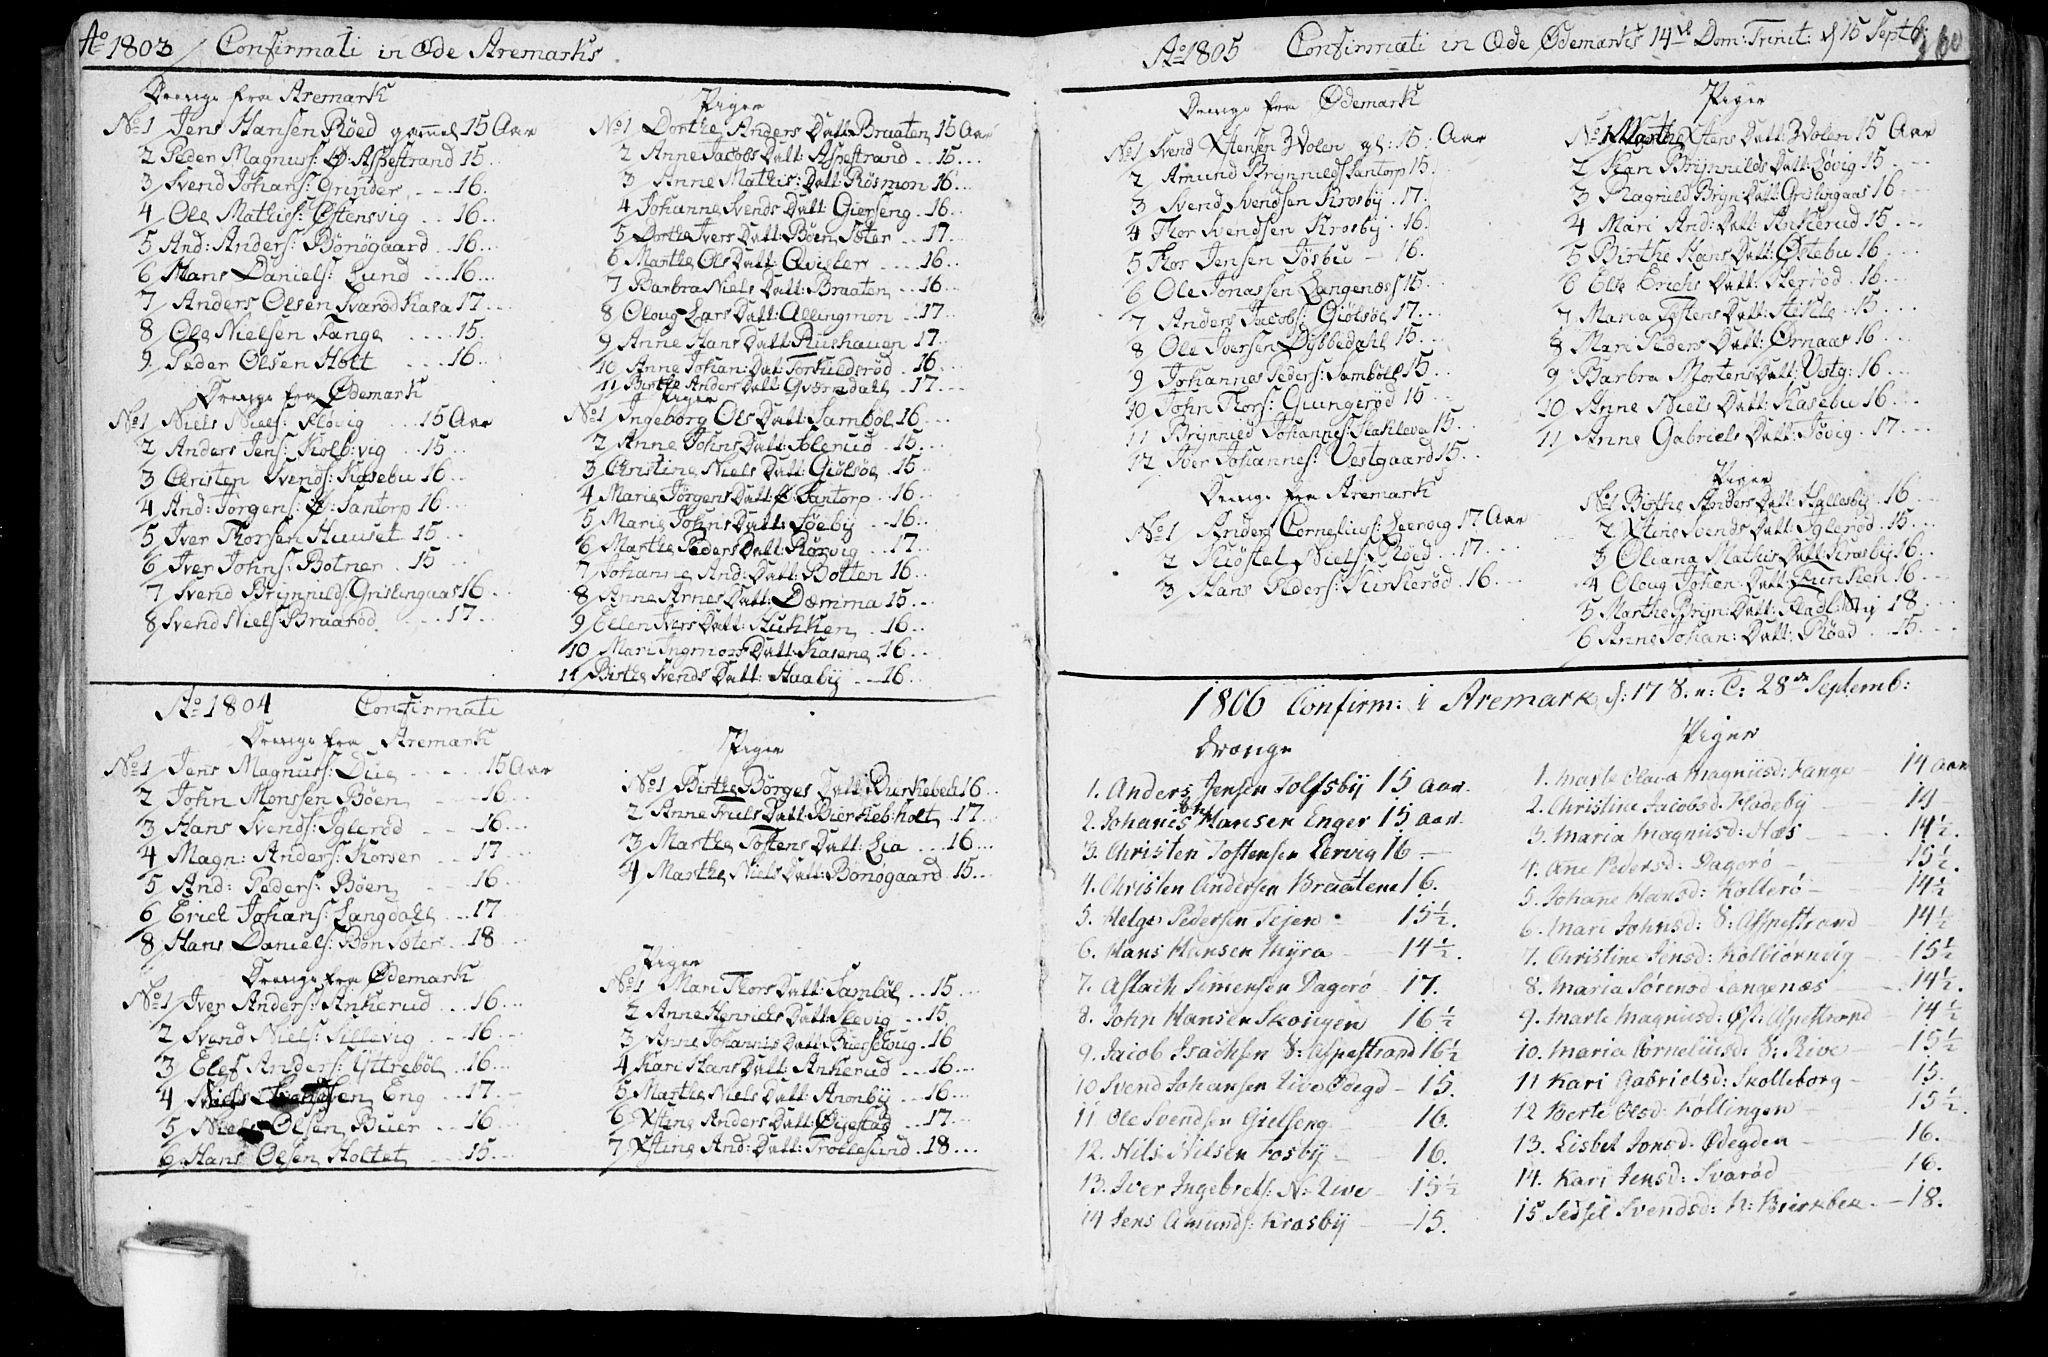 Aº 1803 / Confirmati in Æde Aremarks
Drenge fra Aremark
Nº 1 Jens Hansen Röed gamel 15 Aar
2 Peder Magnuss: Ø: Aspestrand 15
3 Svend Johans: Grinder 16
4 Ole Mathiss: Østensvig 16
5 And: Anders: Bönögaard 16
6 Hans Daniels: Lund 16
7 Anders Olsen Svaröd Kasa 17
8 Ole Nielsen Fange 15
9 Peder Olsen Holt 16
Drenge fra Ødemark
Nº 1 Niels Niels: Flövig 15 Aar
2 Anders Jens: Kolb:vig 15
3 Christen Svends: Kasebu 16
4 And: Jörgens: Ø: Santorp 16
5 Iver Thorsen Huuset 15
6 Iver Johns: Botner 15
7 Svend Brynnilds: Grislingaas 16
8 Svend Niels: Braaröd 17
Piger
Nº 1 Dorthe Anders Datt: Braaten 15 Aar
2 Anne Jacobs Datt: Aspestrand 15
3 Anne Mathis: Datt: Rösmon 16
4 Johanne Svends Datt: Gierseng 16
5 Dorthe Ivers Datt: Böen Sæter 17
6 Marthe Ols Datt: Qvisler 16
7 Barbra Niels Datt: Braaten 16
8 Oloug Lars Datt: Allingmon 17
9 Anne Hans Datt: Rushaugen 17
10 Anne Johan: Dat: Torkildsröd 16
11 Birthe Anders Datt: Qværndalt 17
Piger
Nº 1 Ingeborg Ols Datt: Samböl 16
2 Anne Johns Datt: Iglerud 15
3 Christine Niels Datt: Giölsöe 15
4 Marie Jörgens Datt: Ø: Santorp 16
5 Marie Johns Datt: Söeby 16
6 Marthe Peders Datt: Rörvig 17
7 Johanne And: Datt: Botten 16
8 Anne Arnes Datt: Dæmma 15
9 Ellen Ivers Datt: Kukken 16
10 Mari Ingmors Datt: Kasene 16
11 Birthe Svends Datt: Haabÿ 16
Aº 1804 Confirmati
Drenge fra Aremark
Nº 1 Jens Magnuss: Due 15 Aar
2 John Monssen Böen 16
3 Hans Svends: Igleröd 16
4 Magn: Anders: Korser 17
5 And: Peders: Böen 16
6 Erich Johans: Langdalt 17
8 Hans Daniels: Bön Sæter 18
Drenge fra Ødemark
Nº 1 Iver Anders: Ankerud 16
2 Svend Niels: Sillevig 16
3 Elef Anders: Ÿttreböl 16
4 Niels Eng 17
5 Niels Olsen Buer 16
6 Hans Olsen Holtet 15
Piger
Nº 1 Birthe Börges Datt: Bierkebek 16
2 Anne Truls Datt: Bierkeb:holt 17
3 Marthe Tostens Datt: Lia 16
4 Marthe Niels Datt: Bonögaard 15
Piger
Nº 1 Mari Thors Datt: Samböl 15
2 Anne Henrichs Datt: Slevig 15
3 Anne Johannis Datt: 16
4 Kari Hans Datt: Ankerud 16
5 Marthe Niels Datt: Anonbÿ 16
6 Xstine Anders Datt: Øÿestad 17
7 Xstine And: Datt: Trollesund 18
Aº 1805 Confirmati in Æde Ødemarks 14de Dom: Trinit: d 15 Septb:
60
Drenge fra Ødemark
Nº 1 Svend Xstensen Wolen gl: 15 Aar
2 Amund Brynnilds Santorp 15
3 Svend Svendsen Krosbÿ 17
4 Thor Svendsen Krosbÿ 16
5 Thor Jensen Jösbu 16
6 Ole Jonassen Langenæss 15
7 Anders Jacobs: Giölsöe 17
8 Ole Iversen Dÿbbedahl 15
9 Johannes Peders: Samböl 15
10 John Thors: Giungeröd 15
11 Brÿnnild Johannes: Klakleva 15
12 Iver Johannes: Vestgaard 15
Drenge fra Aremark
Nº 1 Anders Cornelius: Leervig 17 Aar
2 Kiöstel Niels: Röed 17
3 Hans Peders: Kirkeröd 16
Piger
Nº 1 Marthe Xstens Datt: Wolen 15 Aar
2 Kari Brÿnnilds Datt: Lövig 15
3 Ragnild Bryn: Datt: Grislingaas 16
4 Mari And: Datt: Kirkerud 15
5 Birthe Hans Datt: Østebu 16
6 Else Erichs Datt: Skeröd 16
7 Maria Tostens Datt: 15
8 Mari Peders Datt: Ørnaas 16
9 Barbra Mortens Datt: Vestg: 16
10 Anne Niels Datt: Kasebu 16
11 Anne Gabriels Datt: Tövig 17
Piger
Nº 1 Birthe Anders Datt: Hallesbÿ 16
2 Xtine Svends Datt: Igleröd 15
3 Oliana Mathis Datt: Krosbÿ 16
4 Oloug Johan: Datt: Kunken 16
5 Marthe Brÿn: Datt: Flad:bÿ 18
6 Anne Johan: Datt: Röed 15
1806 Confirm: i Aremark d: 17 S. n: T: 28de Septemb:
Drænge
1. Anders Jensen Tolfsbÿ 15 aar.
2. Johanes Hansen Enger 15 aar.
3. Christen Tostensen Lervig 16
4. Christen Andersen Braatene 16.
5. Helge Pedersen Tejen 15½.
6. Hans Hansen Mÿra 14½.
7. Aslach Simensen Dagerö 17.
8. John Hansen Skougen 16½
9. Jacob Isachsen S: Aspestrand 16½
10 Svend Johansen Live Ødegd 15.
11 Ole Svendsen Gielseng 16.
12. Nils Nilsen Fosbÿ 16.
13. Iver Ingebrets: N: Live 15½
14 Jens Amunds: Krosbÿ 15.
Piger
1. Marte Olava Magnusd: Fange 14 aar
2. Christine Jacobsd. Fladebÿ 14
3. Maria Magnusd: Næs 14½.
4. Ane Pedersd: Dagerö 15½.
5. Johane Hansd: Kollerö 14½
6. Mari Johnsd: S: Aspestrand 14½
7. Christine Jensd: Kolbiörnvig 15½
8. Maria Sörensd Langenæs 14½.
9. Marte Magnusd: Øst: Aspestrand 14½
10. Maria Cornelius: S: Rive 15½
11 Kari Gabrielsd: Skolleborg 15.
12 Berte Olsd: Köllingen 15½.
13. Lisbet Jonsd. Ødegden 16.
14. Kari Jensd: Svaröd 16.
15. Sidsel Svendsd: N: Bierkbek 18.